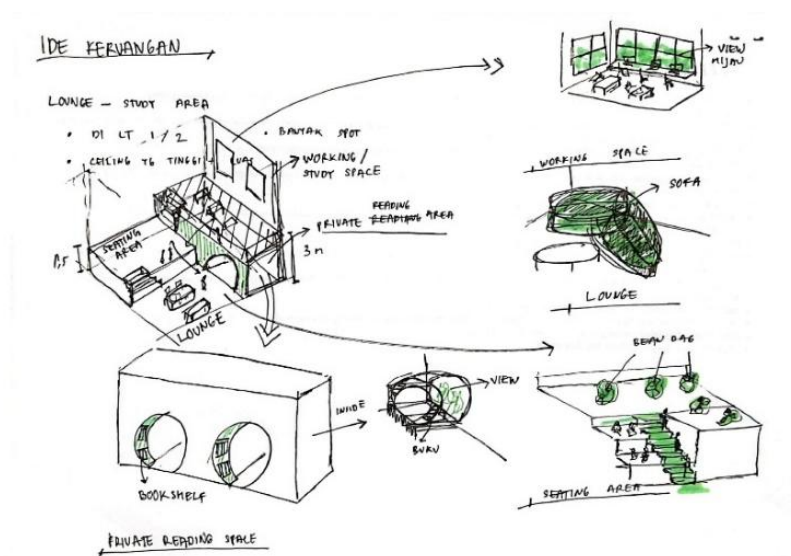 IDE KERUANGAN
LOUNGE – STUDY AREA
• DI LT 1/2
• BANYAK SPOT
• CEILING YG TINGGI
WORKING /
STUDY SPACE
READING
PRIVATE READING AREA
SEATING
AREA
3 m
LOUNGE
VIEW
HIJAU
WORKING SPACE
SOFA
LOUNGE
BEAN BAG
SEATING AREA
INSIDE
VIEW
BUKU
BOOKSHELF
PRIVATE READING SPACE